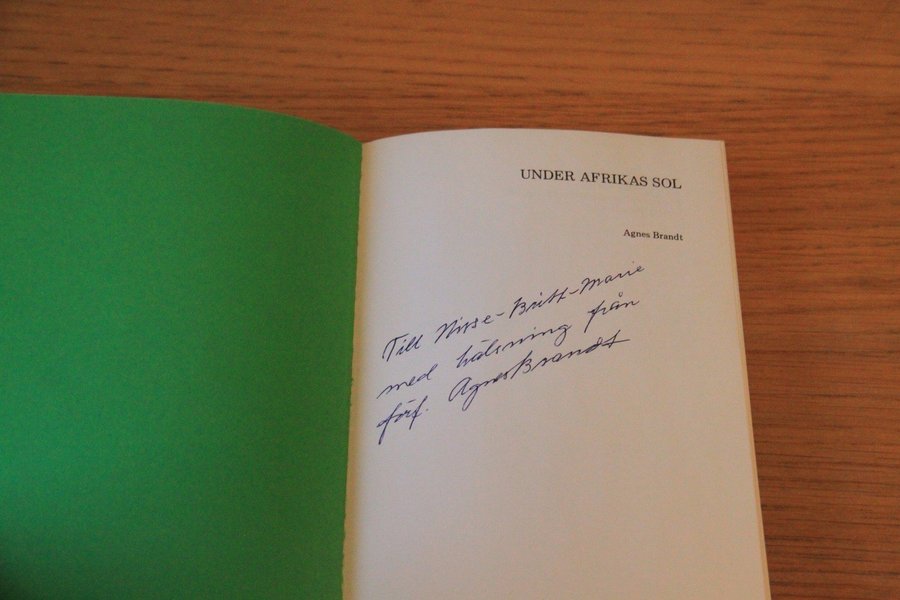 UNDER AFRIKAS SOL
Agnes Brandt
Till Nisse-Britt-Marie
med hälsning från
förf. Agnes Brandt